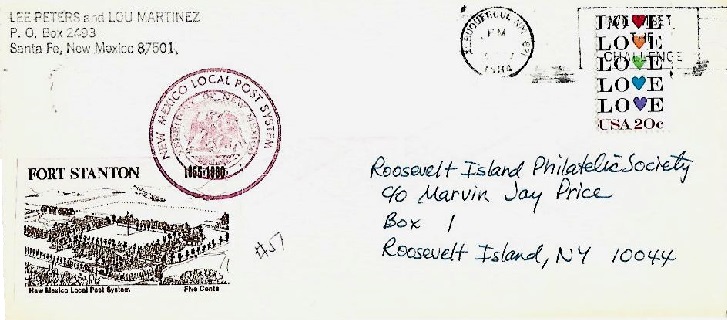 LEE PETERS and LOU MARTINEZ
P. O. Box 2493
Santa Fe, New Mexico 87501
PM
1984
THE
CHALLENGE
LOVE
LOVE
LOVE
LOVE
LOVE
USA 20c
NEW MEXICO LOCAL POST SYSTEM
TERRITORY OF NEW MEXICO
FORT STANTON
New Mexico Local Post System
Five Cents
#57
Roosevelt Island Philatelic Society
c/o Marvin Jay Price
Box 1
Roosevelt Island, NY 10044